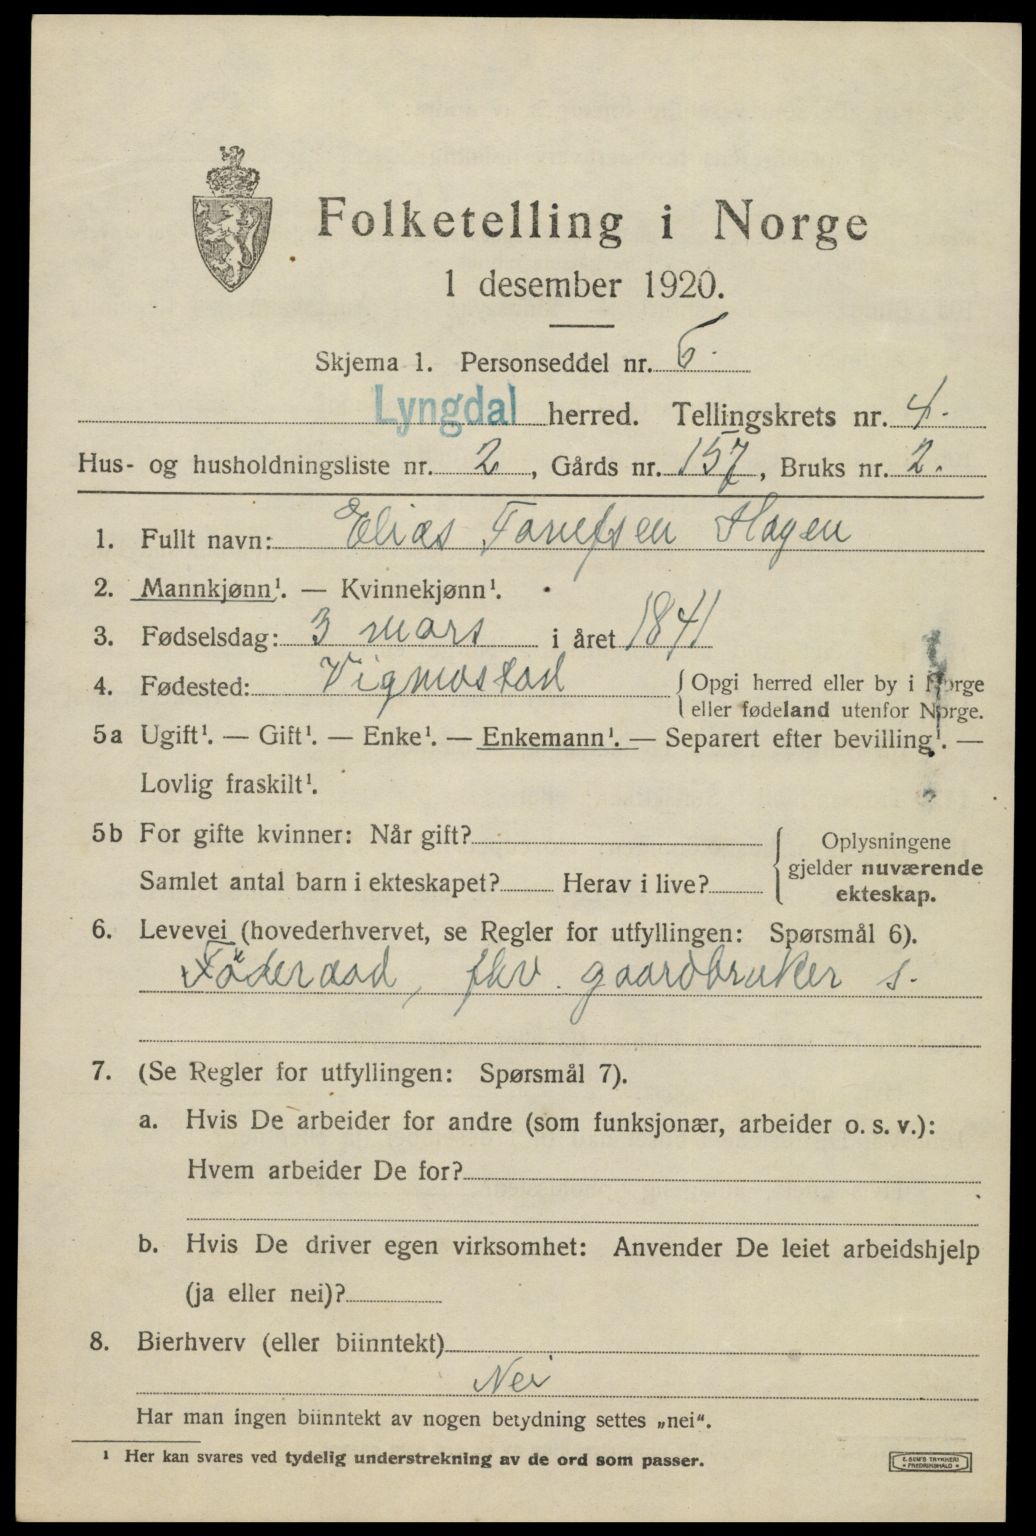 Folketelling i Norge
1 desember 1920.
Skjema 1. Personseddel nr. 6.
Lyngdal herred. Tellingskrets nr. 4.
Hus- og husholdningsliste nr. 2, Gårds nr. 157, Bruks nr. 2.
1. Fullt navn: Elias Hagen
2. Mannkjønn¹. — Kvinnekjønn¹.
3. Fødselsdag: 3 mars i året 1841
4. Fødested: Vigmostad
Opgi herred eller by i Norge
eller fødeland utenfor Norge.
5a Ugift¹. — Gift¹. — Enke¹. — Enkemann¹. — Separert efter bevilling¹. —
Lovlig fraskilt¹.
5b For gifte kvinner: Når gift?
Samlet antal barn i ekteskapet? Herav i live?
Oplysningene
gjelder nuværende
ekteskap.
6. Levevei (hovederhvervet, se Regler for utfyllingen: Spørsmål 6).
Föderaad, fhv. gaardbruker s.
7. (Se Regler for utfyllingen: Spørsmål 7).
a. Hvis De arbeider for andre (som funksjonær, arbeider o. s. v.):
Hvem arbeider De for?
b. Hvis De driver egen virksomhet: Anvender De leiet arbeidshjelp
(ja eller nei)?
8. Bierhverv (eller biinntekt)
Nei
Har man ingen biinntekt av nogen betydning settes „nei“.
¹ Her kan svares ved tydelig understrekning av de ord som passer.
E. SEM'S TRYKKERI
FREDRIKSHALD